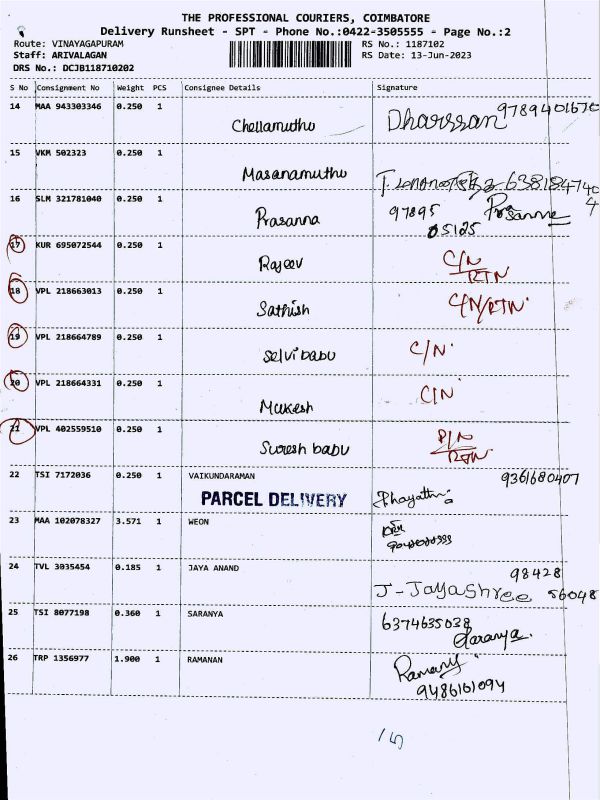 THE PROFESSIONAL COURIERS, COIMBATORE
Delivery Runsheet - SPT - Phone No.:0422-3505555 - Page No.:2
Route: VINAYAGAPURAM RS No.: 1187102
Staff: ARIVALAGAN RS Date: 13-Jun-2023
DRS No.: DCJB118710202
S No Consignment No Weight PCS Consignee Details Signature
14 MAA 943303346 0.250 1 Chellamuthu Dharssan 9789401670
15 VKM 502323 0.250 1 Masanamuthu
16 SLM 321781040 0.250 1 Prasanna 97895 05125 Prasanna
17 KUR 695072544 0.250 1 Rajeev C/N RTN
18 VPL 218663013 0.250 1 Sathish C/N/RTN
19 VPL 218664789 0.250 1 Selvi babu C/N
20 VPL 218664331 0.250 1 Mukesh C/N
21 VPL 402559510 0.250 1 Suresh babu P/N RTN
22 TSI 7172036 0.250 1 VAIKUNDARAMAN 9361680407
PARCEL DELIVERY
23 MAA 102078327 3.571 1 WEON
24 TVL 3035454 0.185 1 JAYA ANAND 98428
J-Jayashree 56048
25 TSI 8077198 0.360 1 SARANYA 6374635038
Saranya.
26 TRP 1356977 1.900 1 RAMANAN Ramany
9486161094